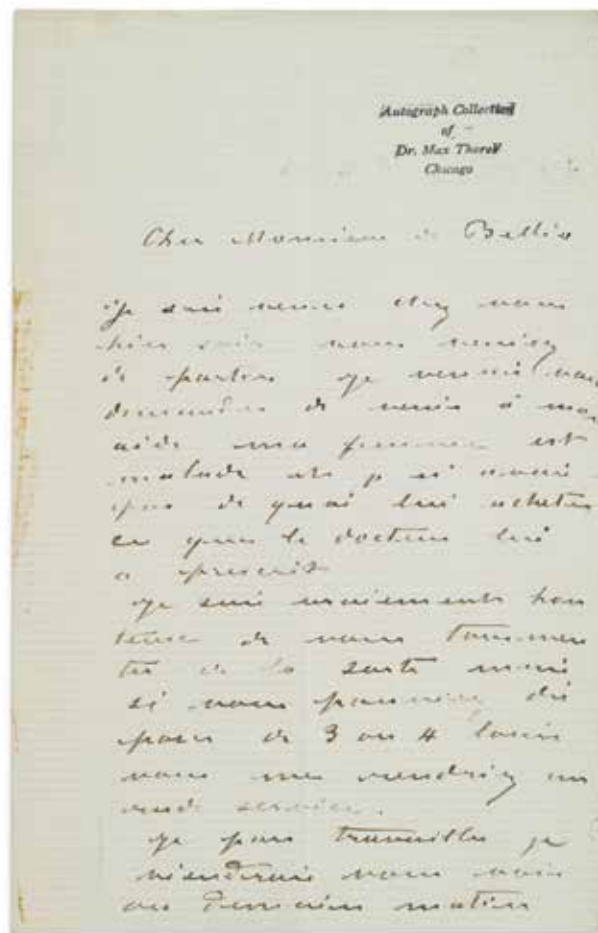 Autograph Collection
of
Dr. Max Thorek
Chicago
Cher Monsieur de Bellio
Je suis venu chez vous
hier soir vous veniez
de partir je venais vous
demander de venir à mon
aide ma femme est
malade et je n'avais
pas de quoi lui acheter
ce que le docteur lui
a prescrit
Je suis vraiment hon
teux de vous tourmen
ter de la sorte mais
si vous pouviez dis
poser de 3 ou 4 louis
vous me rendriez un
rude service.
Je pars travailler je
viendrai vous voir
demain matin